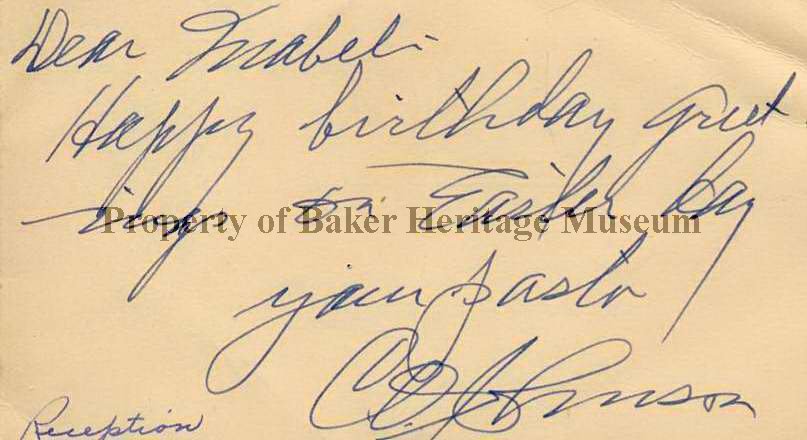 Dear Mabel:
Happy birthday greet
ings on Easter Day
Property of Baker Heritage Museum
your pastor
C.O. Johnson
Reception